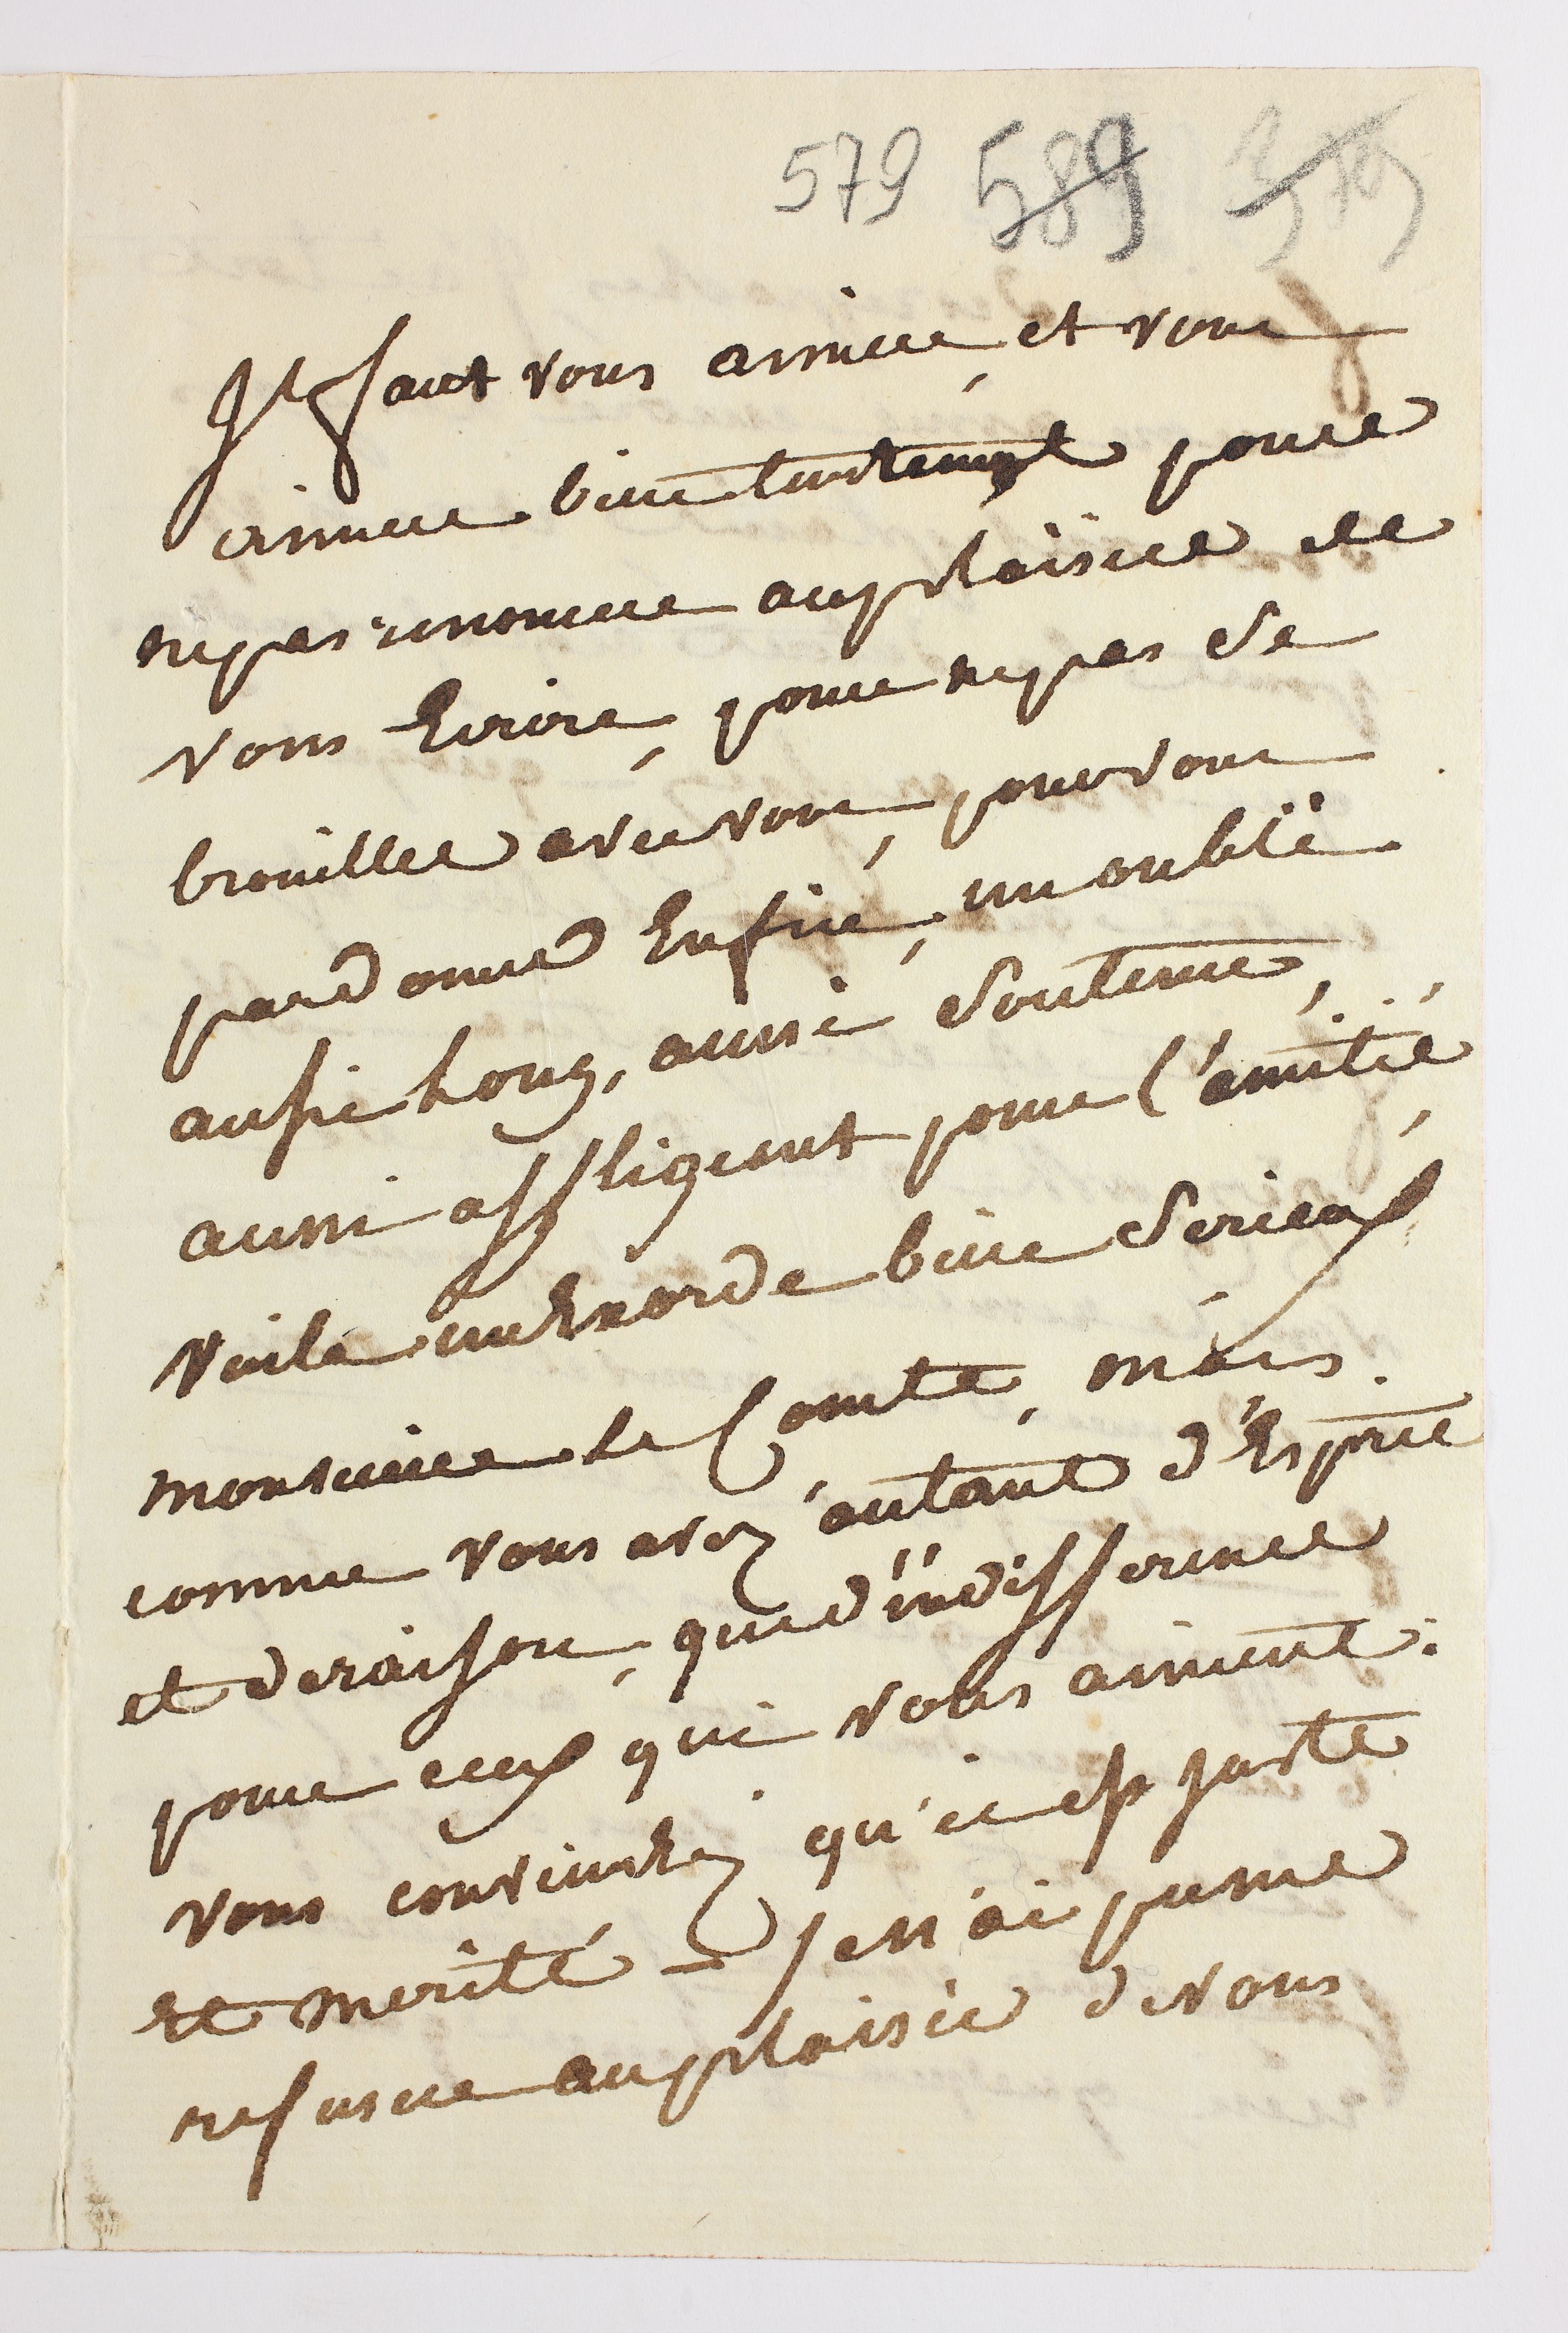 579 589 379
Il faut vous aimer, et vous
aimer bien tendrement pour
ne pas renoncer au plaisir de
vous Ecrire, pour ne pas se
brouiller avec vous, pour vous
pardonner Enfin, un oubli
aussi Long, aussi Soutenu,
aussi affligeant pour l'amitié,
voila un Exorde bien Serieux
monsieur le Comte, mais
comme vous avez autant d'Esprit
et de raison, que d'indifference
pour ceux qui vous aiment:
vous conviendrez qu'il est juste
Et merité = je n'ai pu me
refuser au plaisir de vous